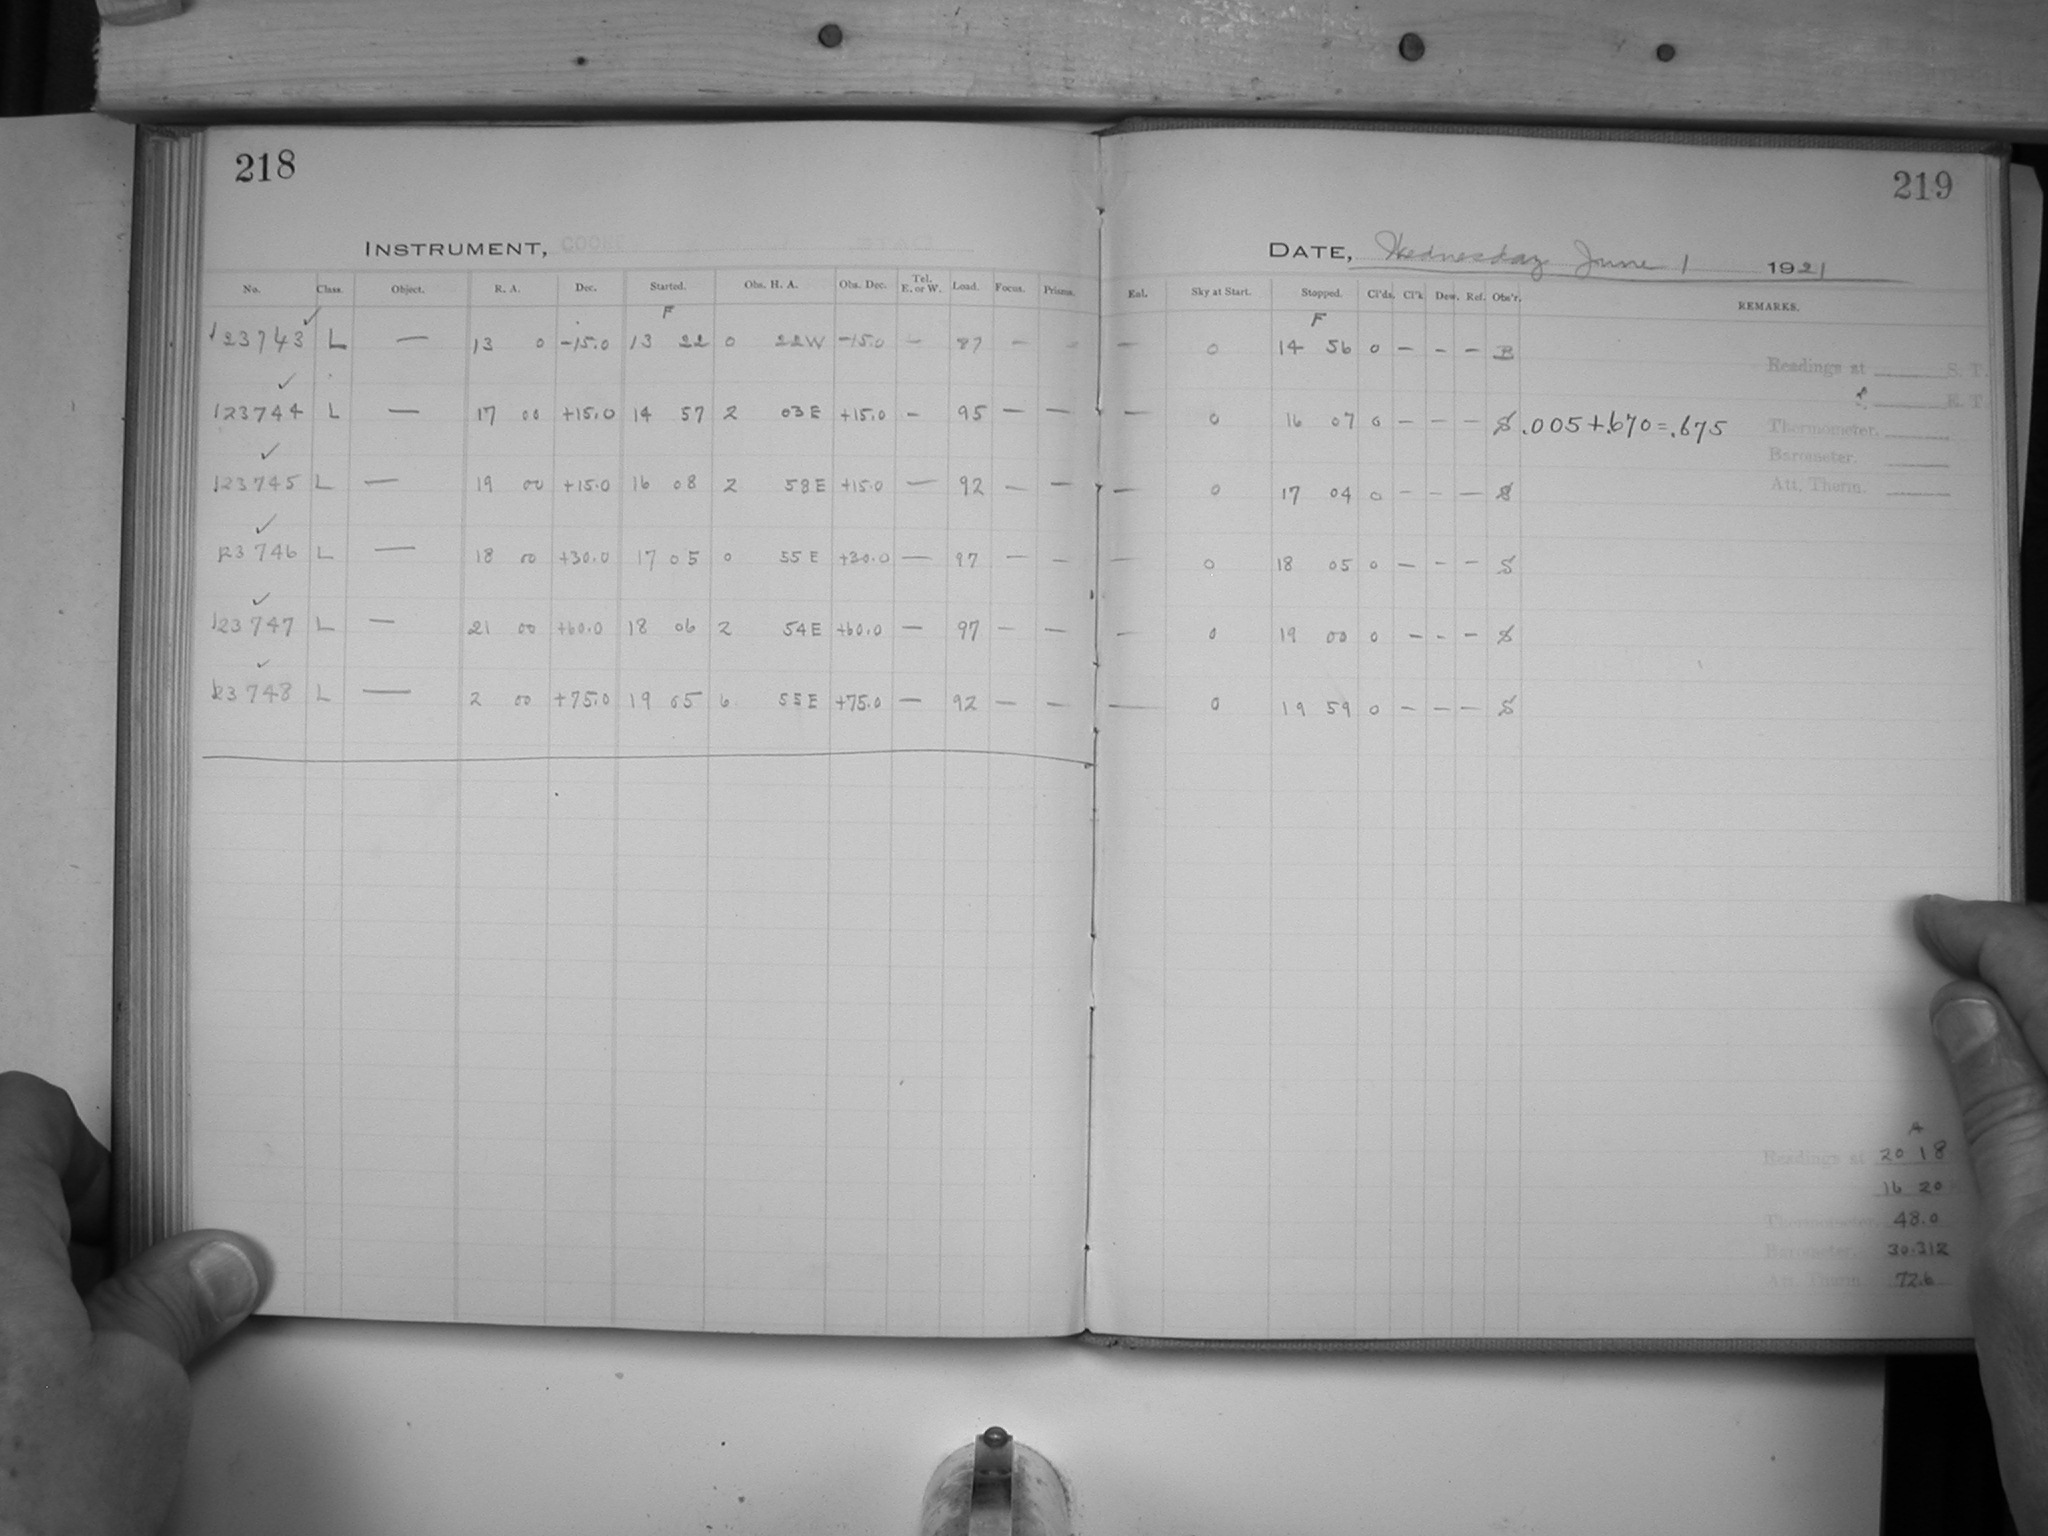 218
INSTRUMENT, COOKE
No. Class. Object. R. A. Dec. Started. Obs. H. A. Obs. Dec. Tel. E. or W. Load. Focus. Prisms.
F
123743 ✓ L — 13 0 -15.0 13 22 0 22W -15.0 — 87 — —
123744 ✓ L — 17 00 +15.0 14 57 2 03E +15.0 — 95 — —
123745 ✓ L — 19 00 +15.0 16 08 2 58E +15.0 — 92 — —
123746 ✓ L — 18 00 +30.0 17 05 0 55E +30.0 — 97 — —
123747 ✓ L — 21 00 +60.0 18 06 2 54E +60.0 — 97 — —
123748 ✓ L — 2 00 +75.0 19 05 6 55E +75.0 — 92 — —
219
DATE, Wednesday June 1 1921
Enl. Sky at Start. Stopped. Cl'ds. Cl'k Dew. Ref. Obs'r. REMARKS.
F
— 0 14 56 0 — — — B
Readings at S. T.
E. T.
— 0 16 07 0 — — — S .005+.670=.675
Thermometer.
Barometer.
Att. Therm.
— 0 17 04 0 — — — S
— 0 18 05 0 — — — S
— 0 19 00 0 — — — S
— 0 19 59 0 — — — S
Readings at 20 18
16 20
Thermometer. 48.0
Barometer. 30.212
Att. Therm. 72.6